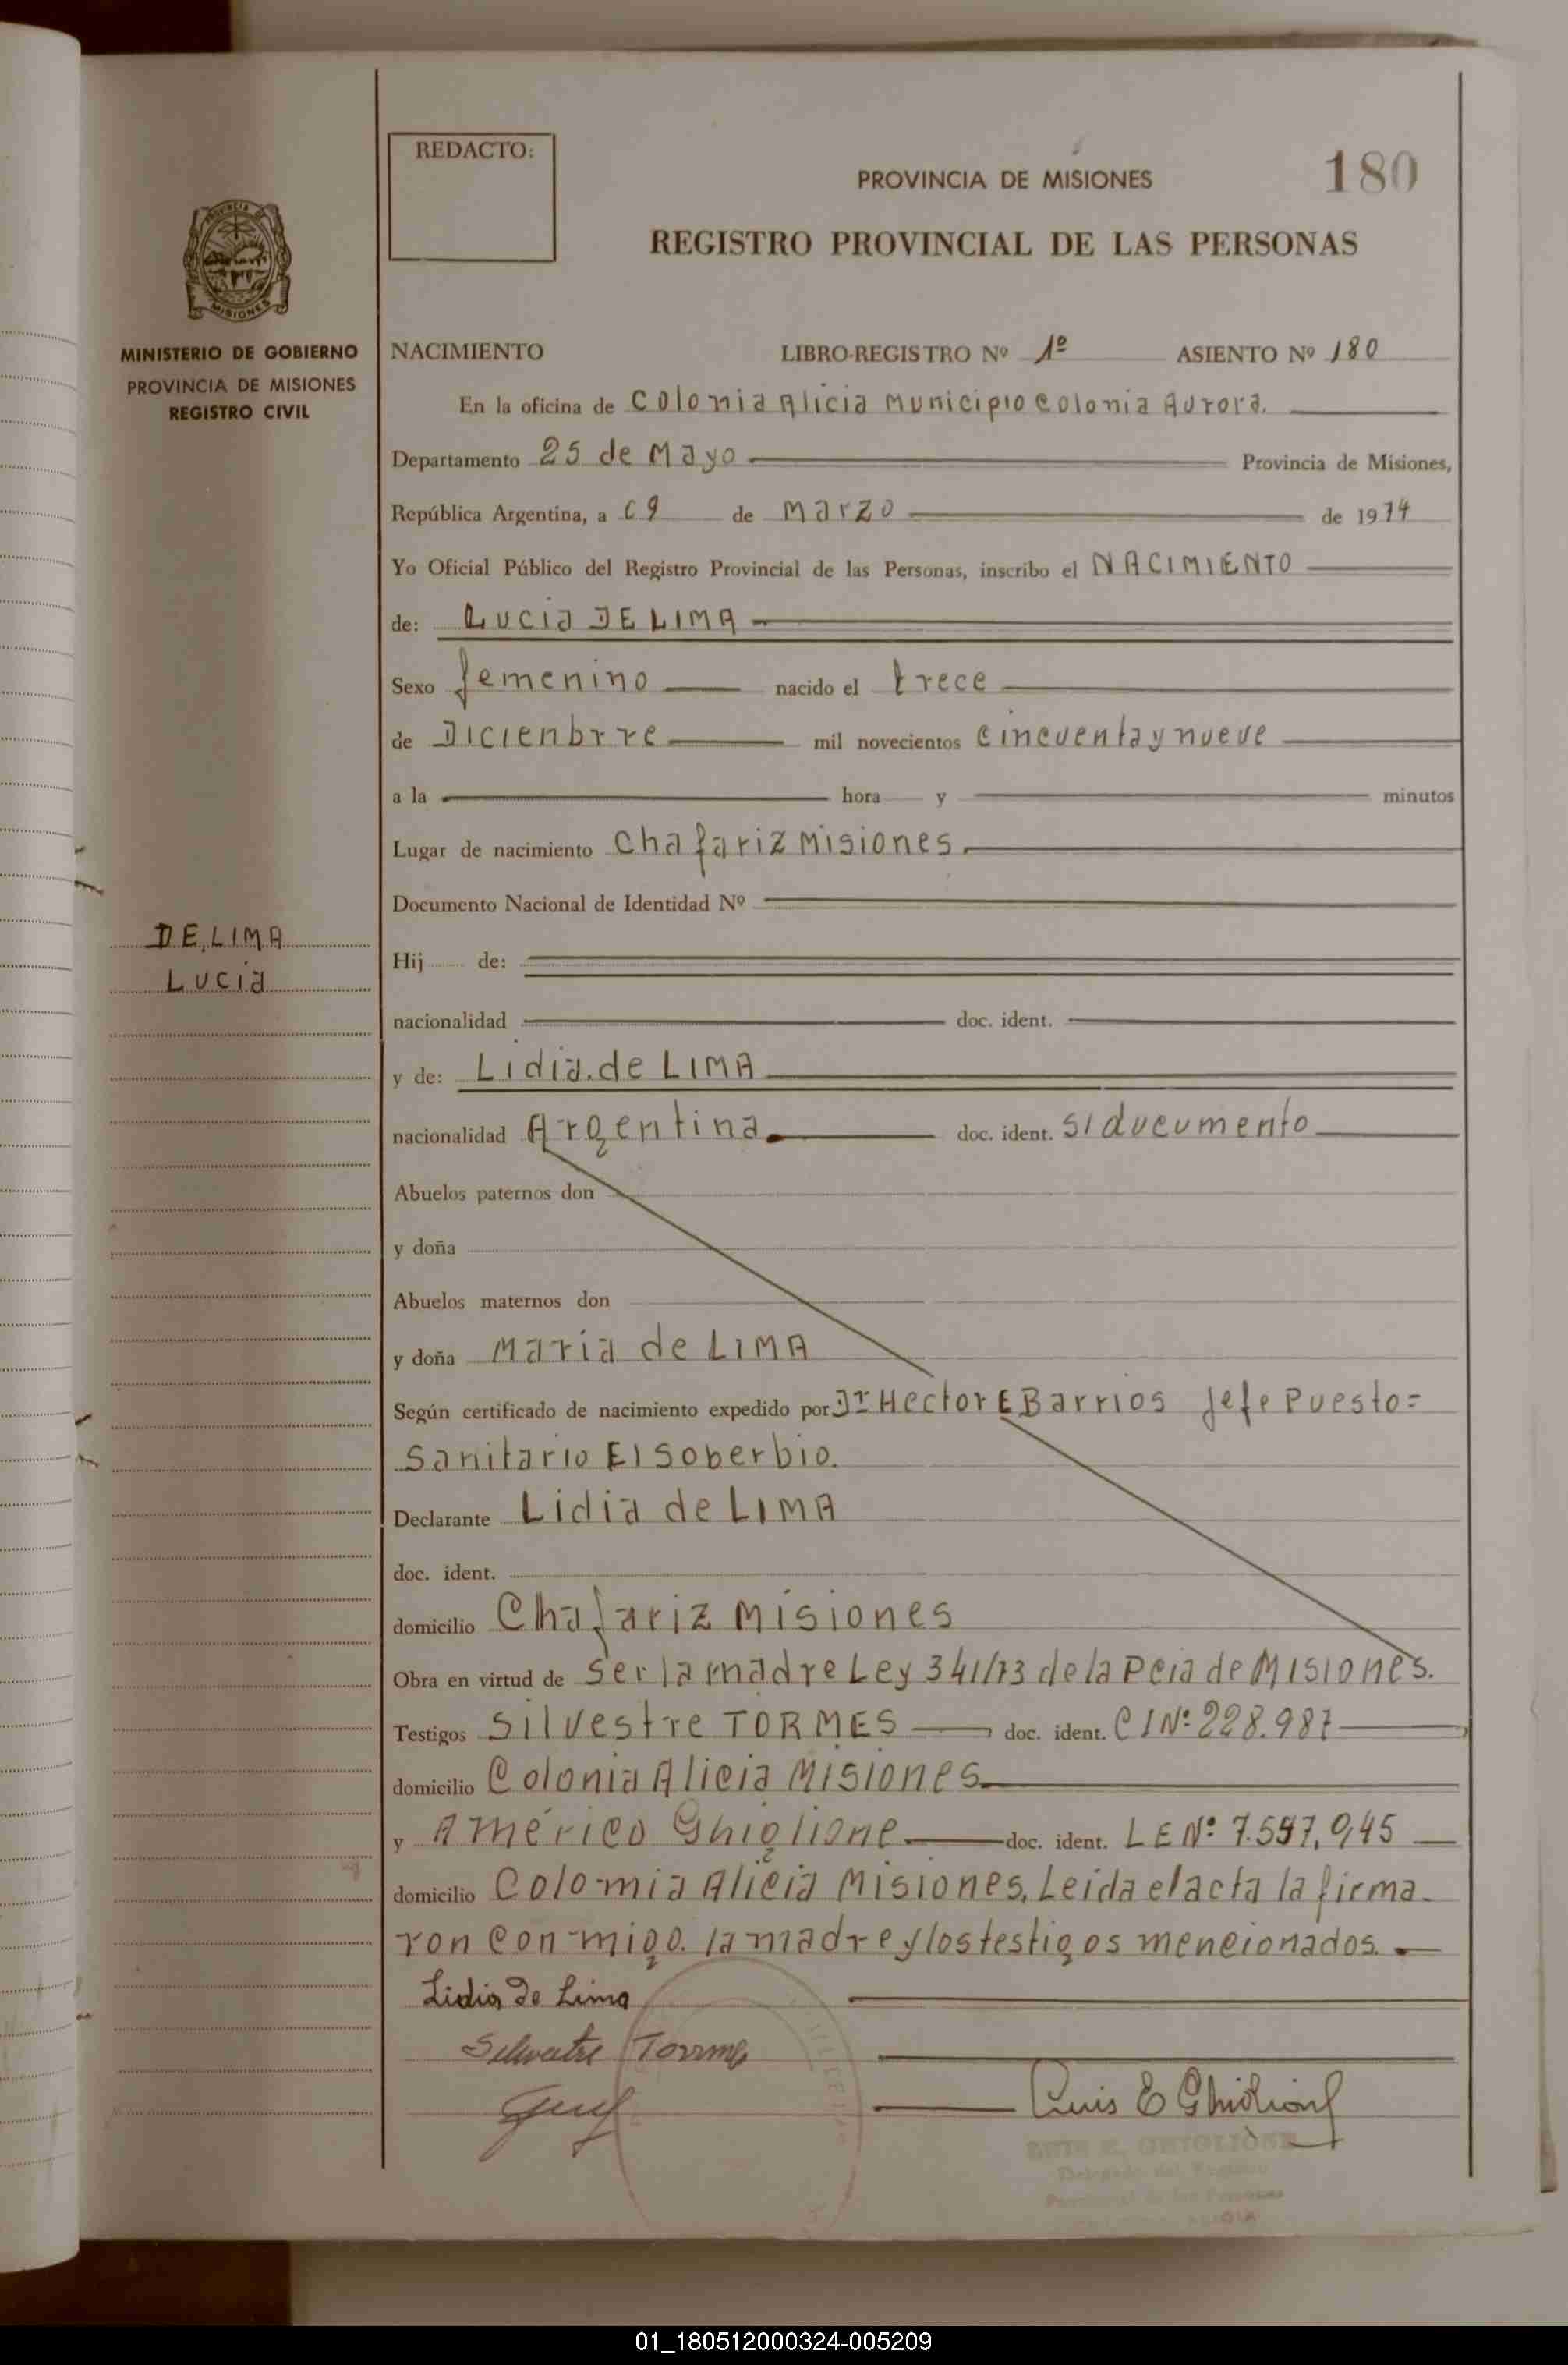 REDACTO:
PROVINCIA DE MISIONES
180
REGISTRO PROVINCIAL DE LAS PERSONAS
MISIONES
MINISTERIO DE GOBIERNO
PROVINCIA DE MISIONES
REGISTRO CIVIL
DE LIMA
Lucia
NACIMIENTO LIBRO-REGISTRO Nº 1º ASIENTO Nº 180
En la oficina de Colonia Alicia Municipio Colonia Aurora.
Departamento 25 de Mayo Provincia de Misiones,
República Argentina, a 09 de Marzo de 1974
Yo Oficial Público del Registro Provincial de las Personas, inscribo el NACIMIENTO
de: Lucia DE LIMA
Sexo femenino nacido el trece
de Dicienbrre mil novecientos cincuenta y nueve
a la hora y minutos
Lugar de nacimiento Chafariz Misiones.
Documento Nacional de Identidad Nº
Hij de:
nacionalidad doc. ident.
y de: Lidia. de LIMA
nacionalidad Argentina. doc. ident. S/ducumento
Abuelos paternos don
y doña
Abuelos maternos don
y doña Maria de LIMA
Según certificado de nacimiento expedido por Dr Hector E Barrios Jefe Puesto=
Sanitario El Soberbio.
Declarante Lidia de LIMA
doc. ident.
domicilio Chafariz Misiones
Obra en virtud de Ser la madre Ley 341/73 de la Pcia de Misiones.
Testigos Silvestre TORMES doc. ident. CI Nº 228.987
domicilio Colonia Alicia Misiones
y Américo Ghiglione doc. ident. LE Nº 7.597.945
domicilio Colomia Alicia Misiones, Leida el acta la firma-
ron con migo. la madre y los testigos mencionados.
Lidia De Lima
Silvestre Torrmes
Luis E Ghiglione
LUIS E. GHIGLIONE
Delegado del Registro
Provincial de las Personas
01_180512000324-005209